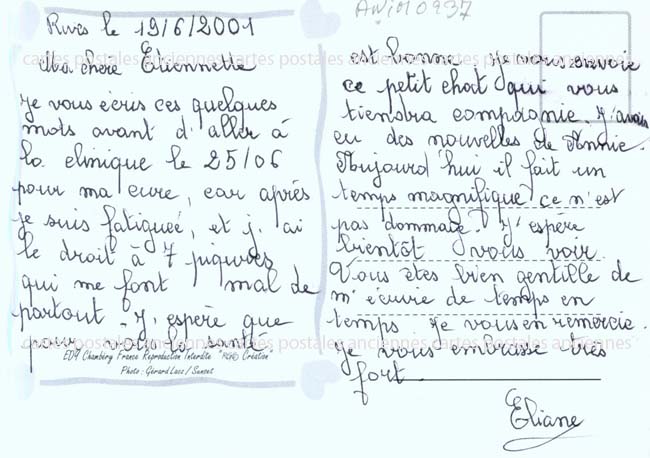 AW1010937
Rives le 19/6/2001
Ma chère Etiennette
Je vous écris ces quelques
mots avant d'aller à
la clinique le 25/06
pour ma cure, car après
je suis fatiguée, et j'ai
le droit à 7 piqures
qui me font mal de
partout. J'espère que
pour vous la santé
EDY Chambéry France Reproduction Interdite Création"
Photo : Gérard Lacz / Sunset
est bonne. Je vous envoie
ce petit chat qui vous
tiendra compagnie. J'avais
eu des nouvelles de Annie.
Aujourd'hui il fait un
temps magnifique ce n'est
pas dommage. J'espère
bientôt vous voir
Vous êtes bien gentille de
m'écrire de temps en
temps. Je vous en remercie.
Je vous embrasse très
fort.
Eliane
cartes postales anciennes cartes postales anciennes cartes postales anciennes
cartes postales anciennes cartes postales anciennes cartes postales anciennes